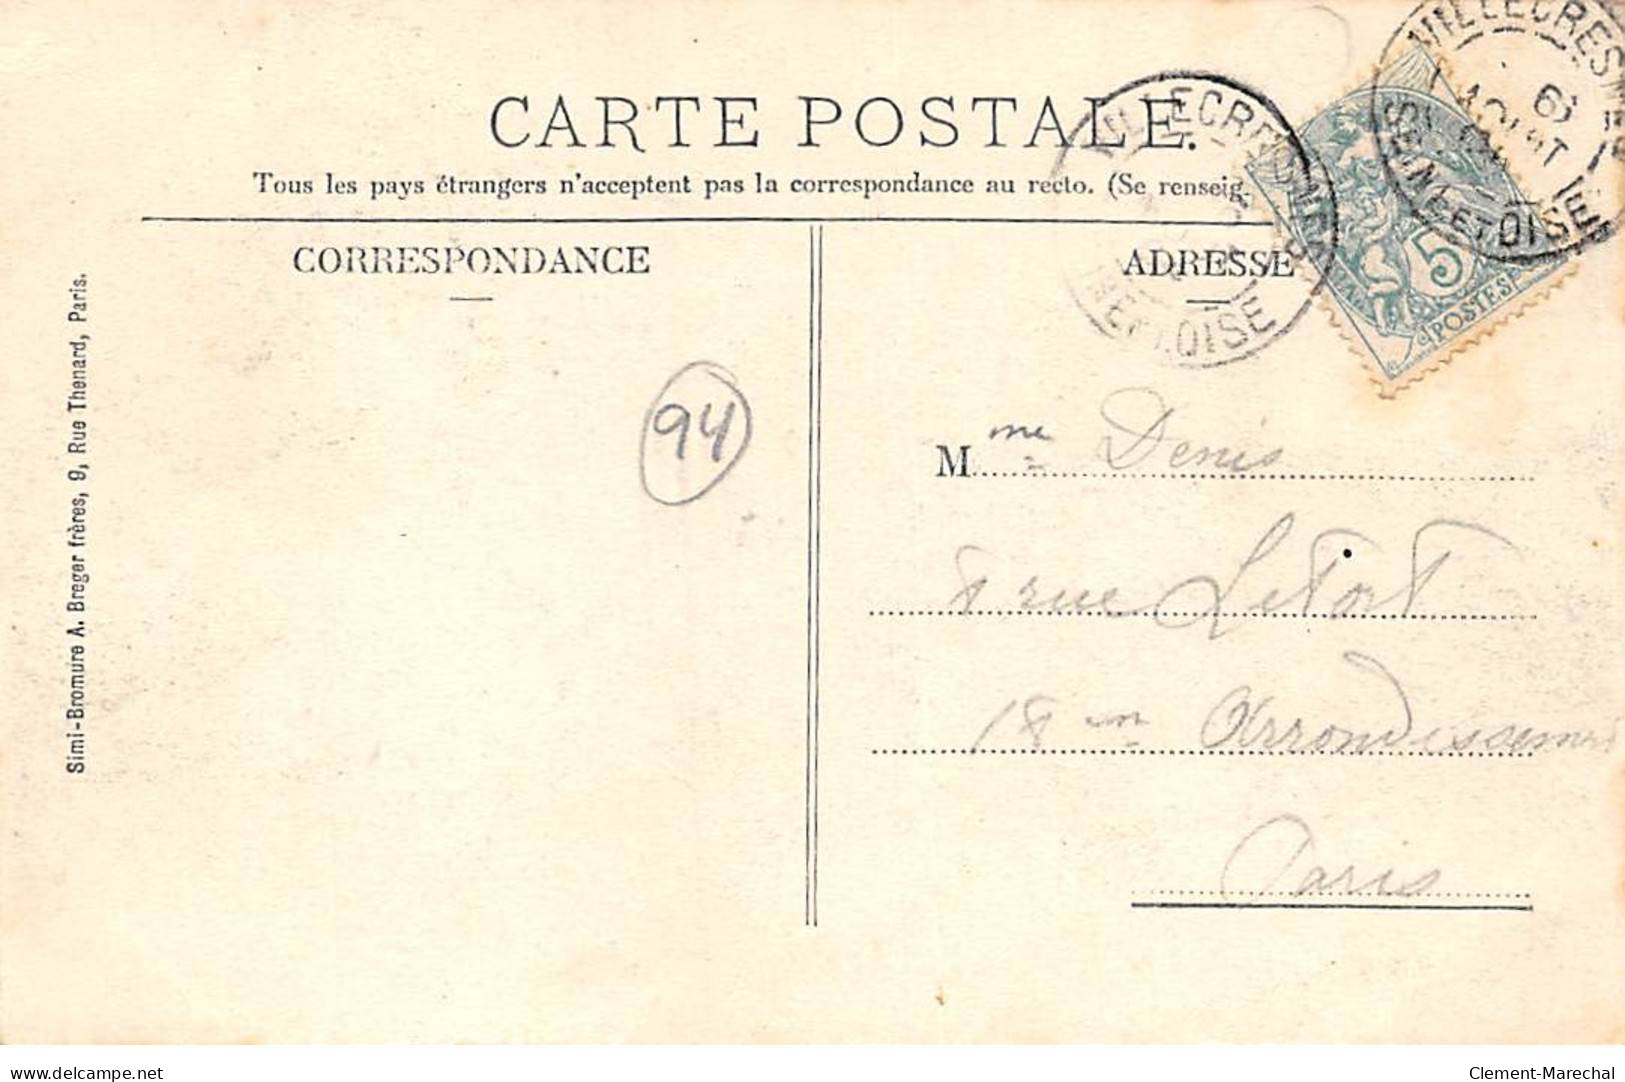 CARTE POSTALE.
Tous les pays étrangers n'acceptent pas la correspondance au recto. (Se renseig
CORRESPONDANCE
ADRESSE
VILLECRESNES
6
AOUT
SEINE ET OISE
VILLECRESNES
SEINE ET OISE
5
POSTES
94
Mme Denis
8 rue Letort
18 em Arrondissement
Paris
Simi-Bromure A. Breger frères, 9, Rue Thenard, Paris.
www.delcampe.net
Clement-Marechal